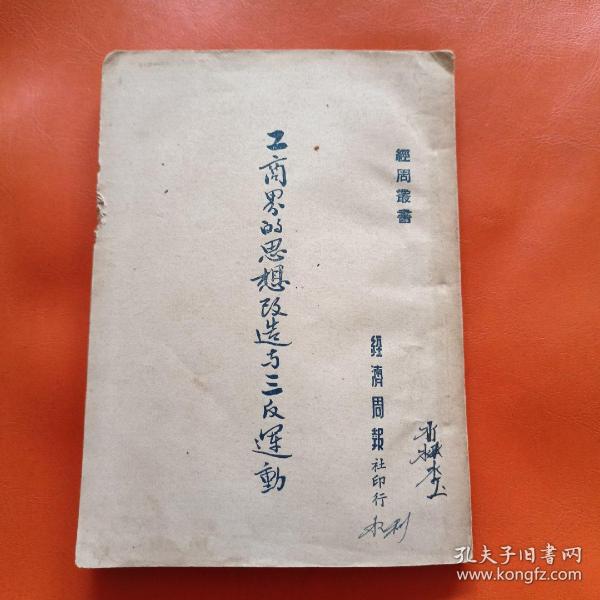 經周叢書
工商界的思想改造与三反運動
經濟周報社印行
永利
孔夫子旧书网
www.kongfz.com